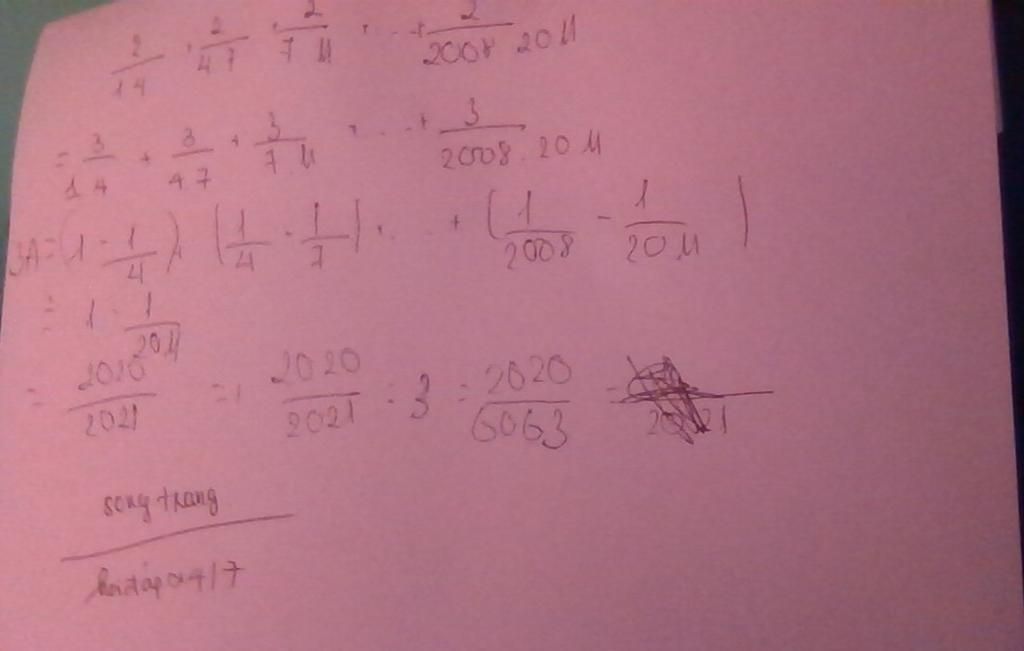 2/1.4 + 2/4.7 + 2/7.11 + ... + 2/2008.2011
= 3/1.4 + 3/4.7 + 3/7.11 + ... + 3/2008.2011
3A = (1 - 1/4) + (1/4 - 1/7) + ... + (1/2008 - 1/2011)
= 1 - 1/2011
= 2020/2021 = 2020/2021 : 3 = 2020/6063 =
song trang